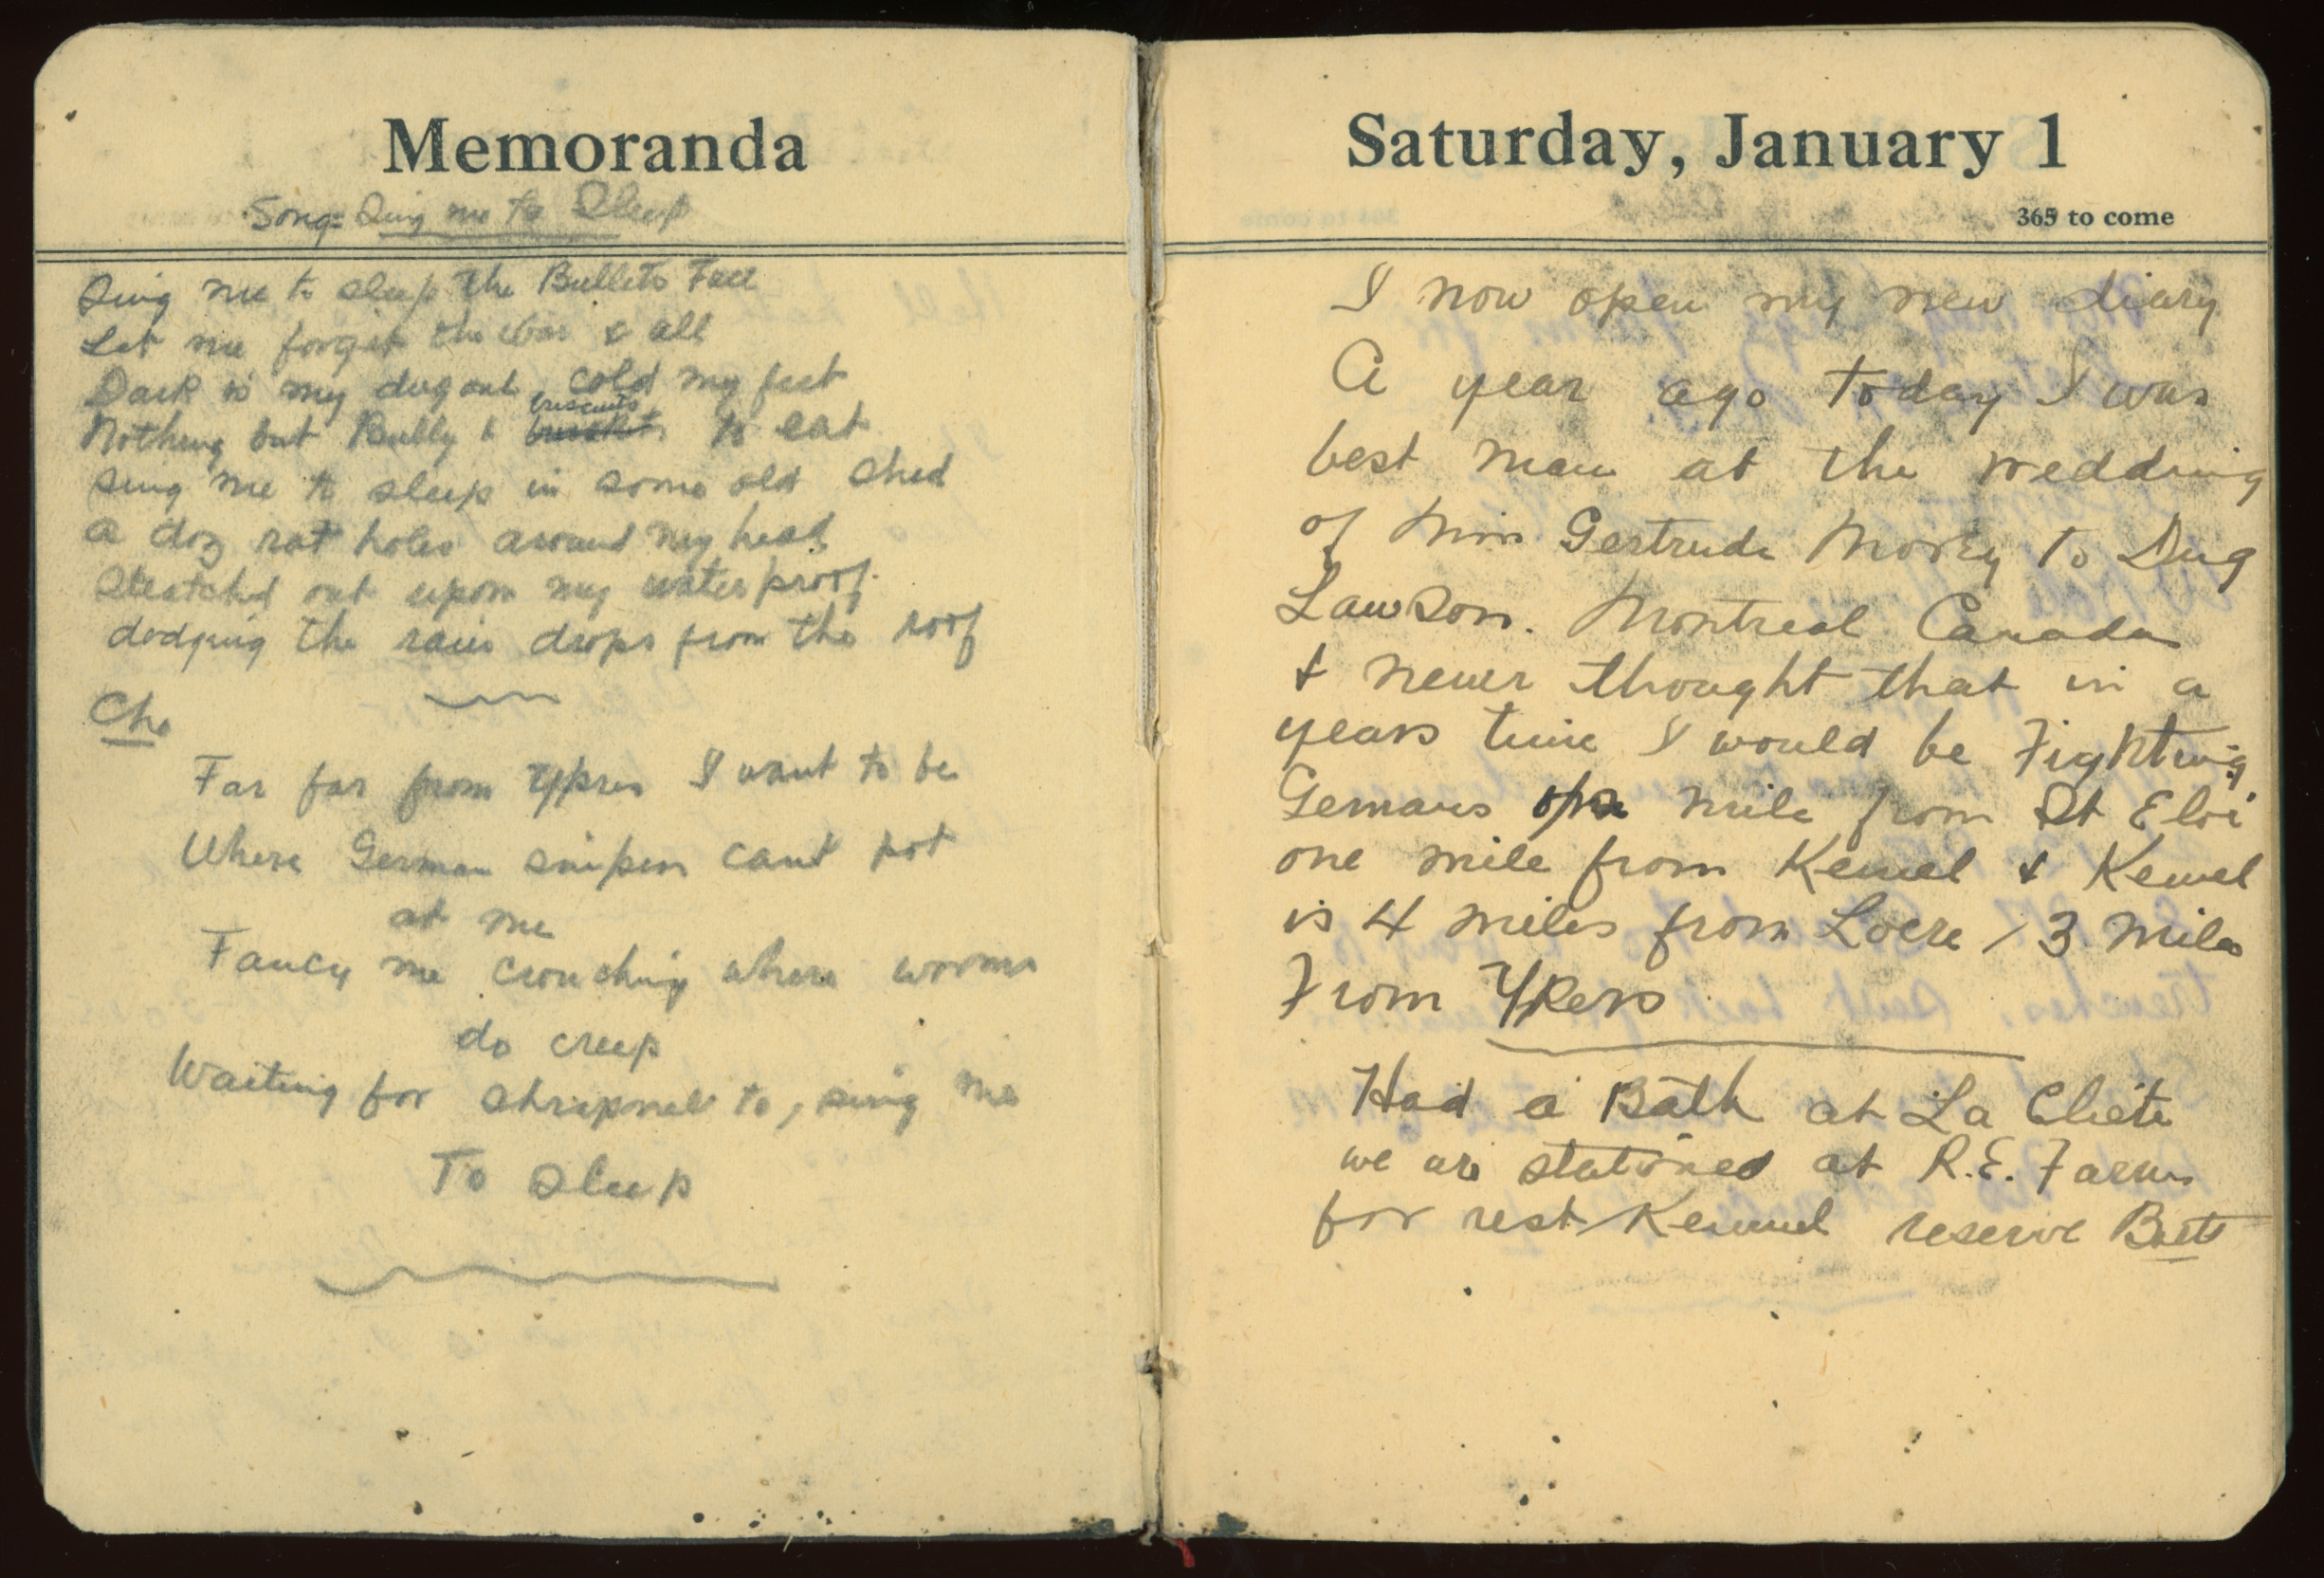 Memoranda
Song= Sing me to Sleep
Sing me to sleep the Bullets Fall
Let me forget the War & all
Dark is my dugout cold my feet
Nothing but Bully & biscuits to eat
Sing me to sleep in some old shed
a doz rat holes around my head
Stretched out upon my waterproof
dodging the rain drops from the roof
Cho
Far far from Ypres I want to be
Where German snipers cant pot
at me
Fancy me crouching where worms
do creep
Waiting for shrapnel to, sing me
To Sleep
Saturday, January 1
365 to come
I now open my new diary
A year ago today I was
best man at the wedding
of Miss Gertrude to Dug
Lawson. Montreal Canada
& never thought that in a
years time I would be Fighting
Germans mile from St Eloi
one mile from Kemel & Kemel
is 4 miles from Locre / 3 miles
From Ypers
Had a Bath at La
we are stationed at R.E. Farm
for rest Kemmel reserve Batt